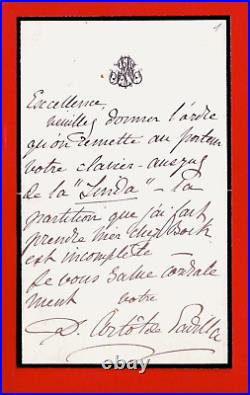 1
Excellence,
veuillez donner l'ordre
qu'on remette au porteur
votre clavier-auszug
de la "Linda" - la
partition que j'ai fait
prendre hier chez Bock
est incomplète
Je vous salue cordiale
ment votre
D. Artôt de Padilla
© thebestautographs